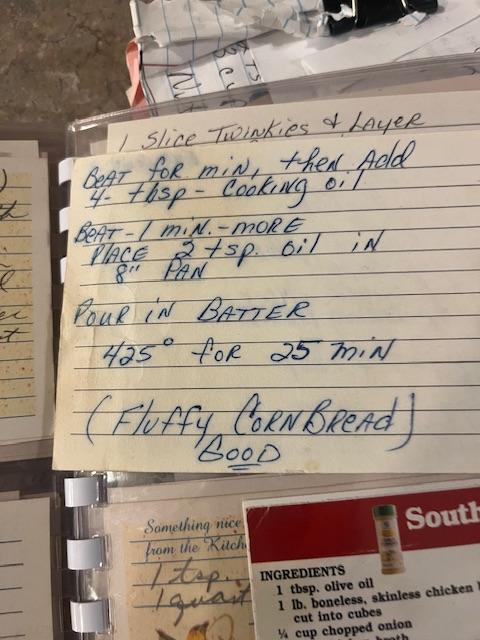 1 Slice Twinkies & Layer
Beat for min, then Add
4- tbsp - cooking oil
Beat - 1 min. - more
Place 2 tsp. oil in
8" Pan
Pour in Batter
425° for 25 min
(Fluffy CornBread)
Good
Something nice
from the Kitch
1 tsp.
1 quart
South
INGREDIENTS
1 tbsp. olive oil
1 lb. boneless, skinless chicken
cut into cubes
¼ cup chopped onion
broth